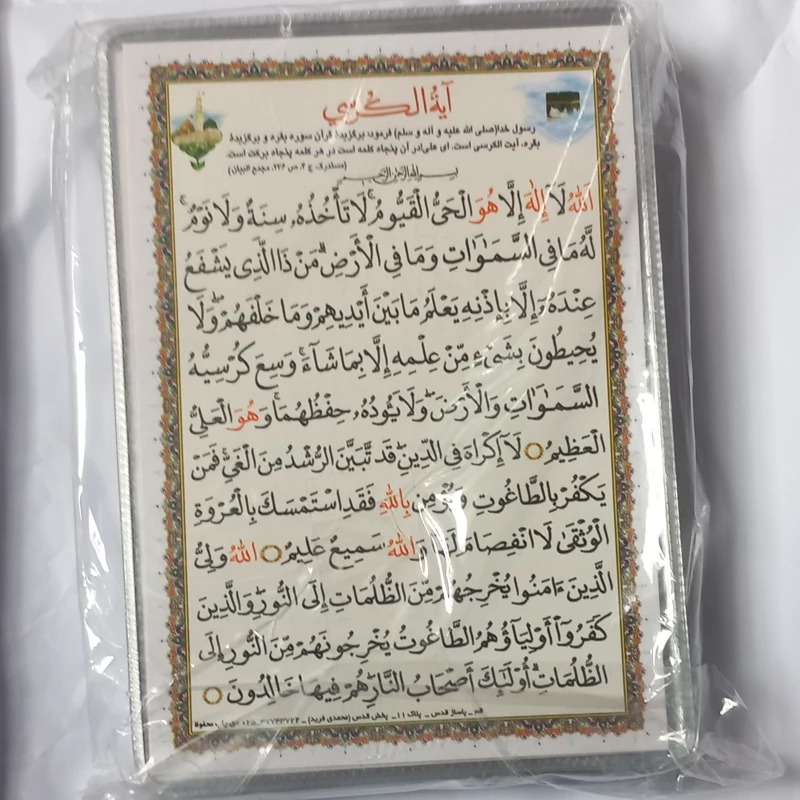 آیة الکرسي
رسول خدا(صلی الله علیه و آله و سلم) فرمود: برگزیدۀ قرآن سوره بقره و برگزیدۀ
بقره، آیت الکرسی است. ای علی!در آن پنجاه کلمه است در هر کلمه پنجاه برکت است.
(مستدرک، ج ۴، ص ۳۳۶، مجمع البیان)
بسم الله الرحمن الرحیم
اَللّٰهُ لَآ إِلٰهَ إِلَّا هُوَ الْحَىُّ الْقَيُّومُ ۚ لَا تَأْخُذُهُۥ سِنَةٌ وَلَا نَوْمٌ ۚ
لَّهُ مَا فِى السَّمٰوٰاتِ وَمَا فِى الْأَرْضِ ۗ مَن ذَا الَّذِى يَشْفَعُ
عِندَهُۥٓ إِلَّا بِإِذْنِهِ يَعْلَمُ مَا بَيْنَ أَيْدِيهِمْ وَمَا خَلْفَهُمْ ۖ وَلَا
يُحِيطُونَ بِشَىْءٍ مِّنْ عِلْمِهِ إِلَّا بِمَا شَآءَ ۚ وَسِعَ كُرْسِيُّهُ
السَّمٰوٰاتِ وَالْأَرْضَ ۖ وَلَا يَـُٔودُهُۥ حِفْظُهُمَا ۚ وَهُوَ الْعَلِىُّ
الْعَظِيمُ ۝ لَآ إِكْرَاهَ فِى الدِّينِ ۖ قَد تَّبَيَّنَ الرُّشْدُ مِنَ الْغَىِّ ۚ فَمَن
يَكْفُرْ بِالطَّاغُوتِ وَيُؤْمِن بِاللّٰهِ فَقَدِ اسْتَمْسَكَ بِالْعُرْوَةِ
الْوُثْقَىٰ لَا انفِصَامَ لَهَا ۗ وَاللّٰهُ سَمِيعٌ عَلِيمٌ ۝ اللّٰهُ وَلِىُّ
الَّذِينَ ءَامَنُوا يُخْرِجُهُم مِّنَ الظُّلُمَاتِ إِلَى النُّورِ ۖ وَالَّذِينَ
كَفَرُوٓا أَوْلِيَآؤُهُمُ الطَّاغُوتُ يُخْرِجُونَهُم مِّنَ النُّورِ إِلَى
الظُّلُمَاتِ ۗ أُولَٰٓئِكَ أَصْحَابُ النَّارِ ۖ هُمْ فِيهَا خَالِدُونَ ۝
قم ـ پاساژ قدس ـ پلاک ۱۱ ـ پخش قدس (محمدی فرید) ـ ۳۷۷۴۳۷۲۴ـ۰۲۵ محفوظ